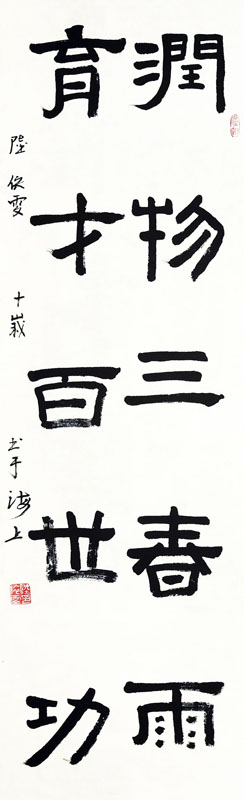 潤物三春雨
育才百世功
陸俊雯 十歲 书于海上